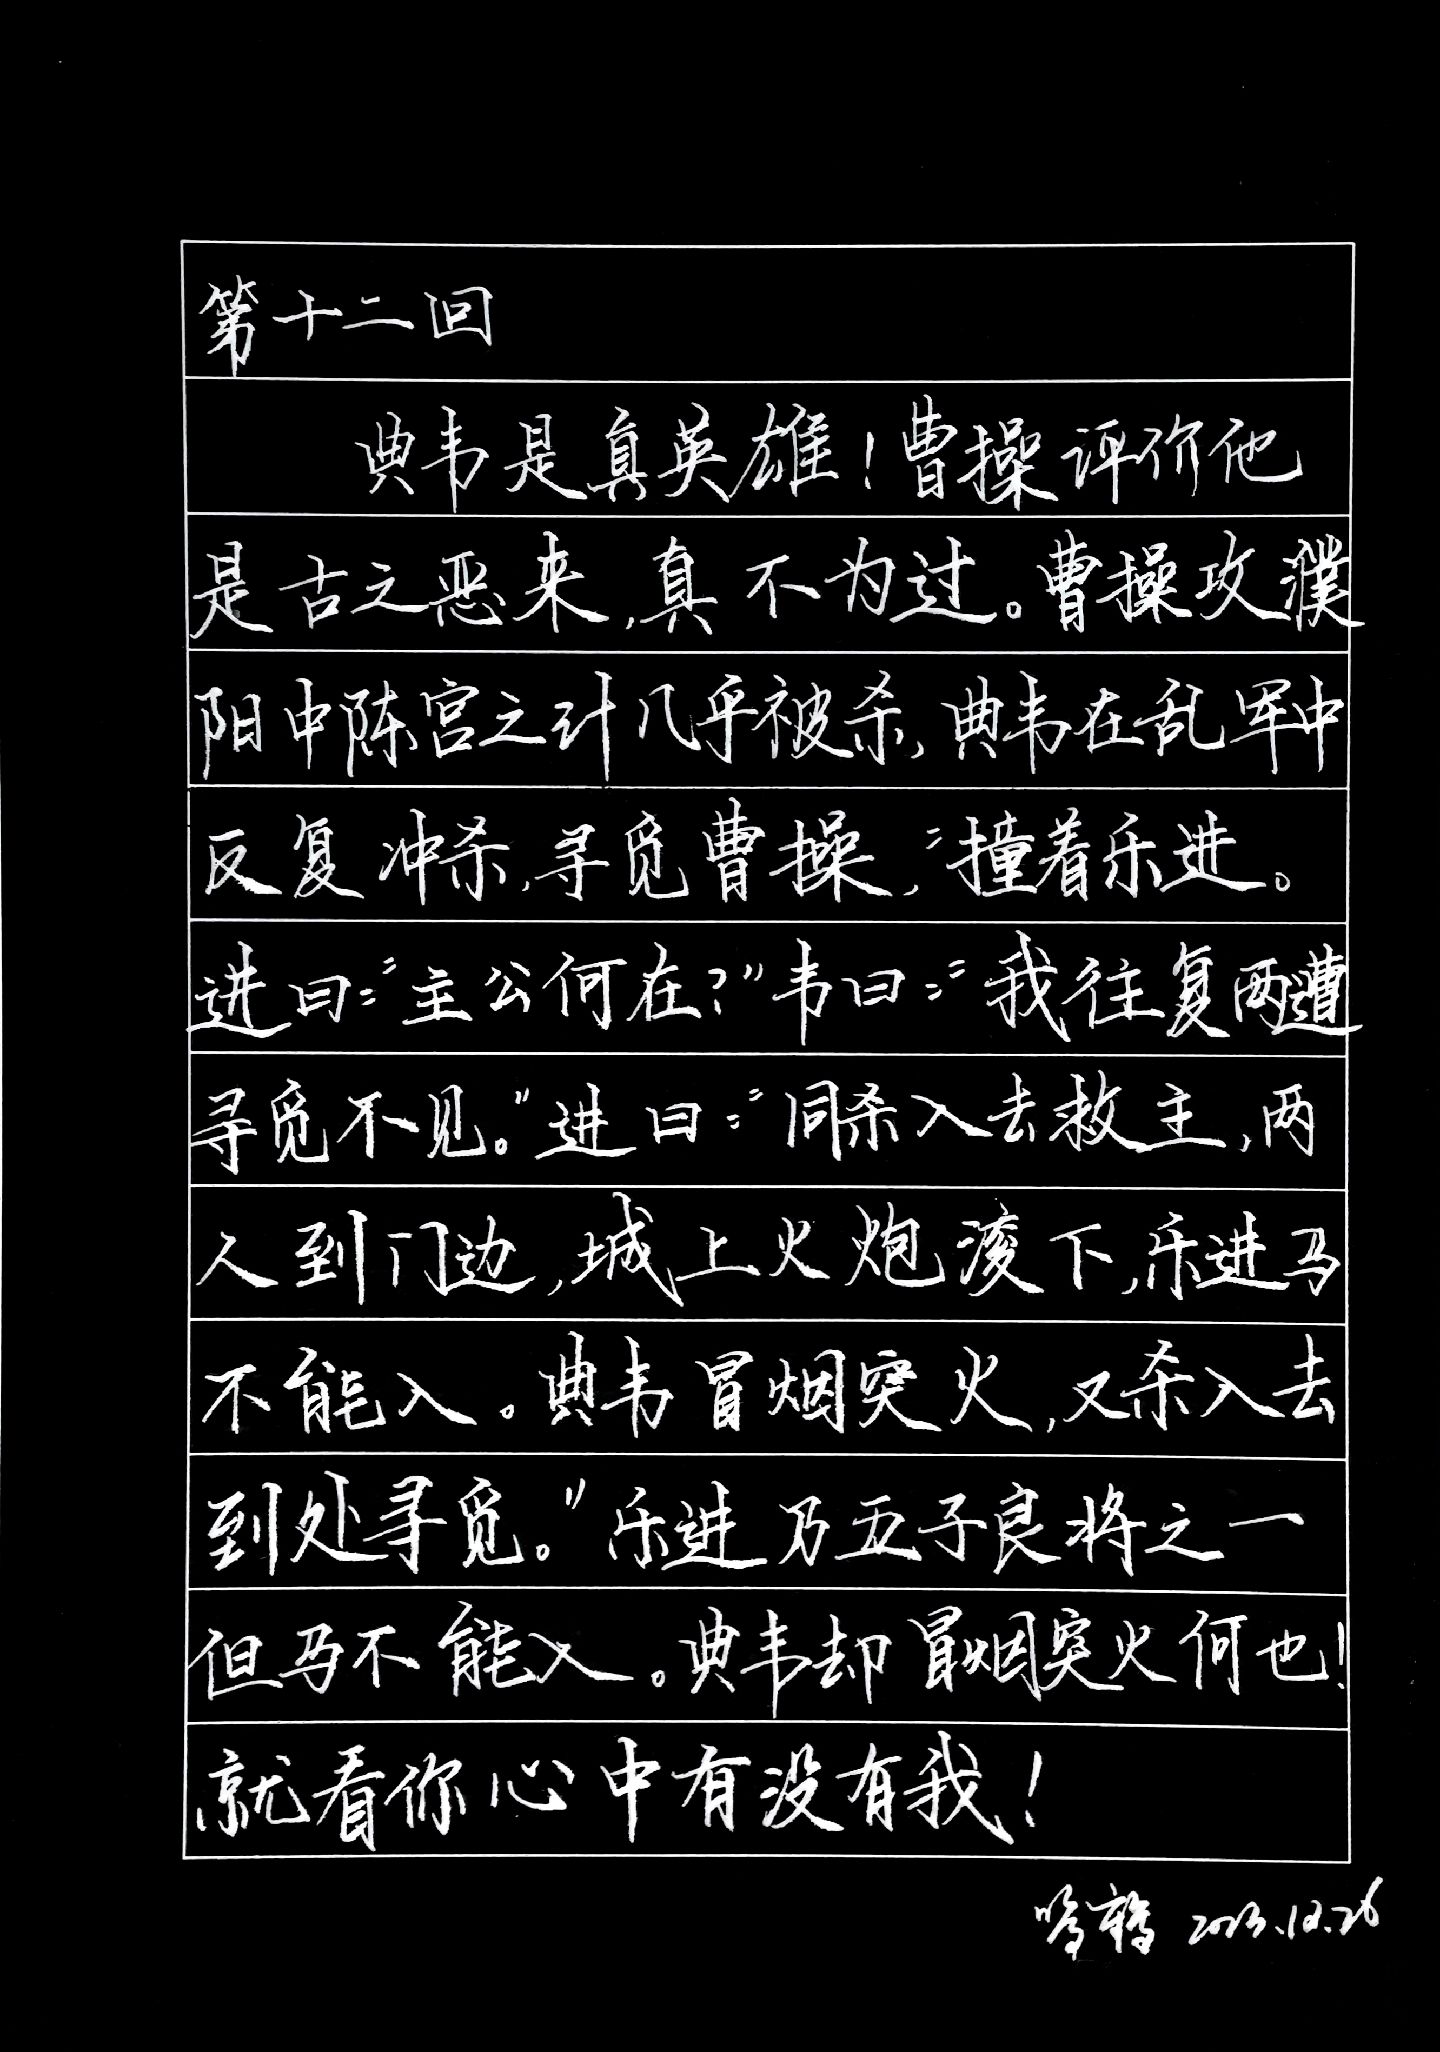 第十二回
典韦是真英雄！曹操评价他
是古之恶来，真不为过。曹操攻濮
阳中陈宫之计几乎被杀，典韦在乱军中
反复冲杀，寻觅曹操，“撞着乐进。
进曰：“主公何在？”韦曰：“我往复两遭
寻觅不见。”进曰：“同杀入去救主，两
人到门边，城上火炮滚下，乐进马
不能入。典韦冒烟突火，又杀入去
到处寻觅。”乐进乃五子良将之一
但马不能入。典韦却冒烟突火何也！
就看你心中有没有我！
2023.12.26